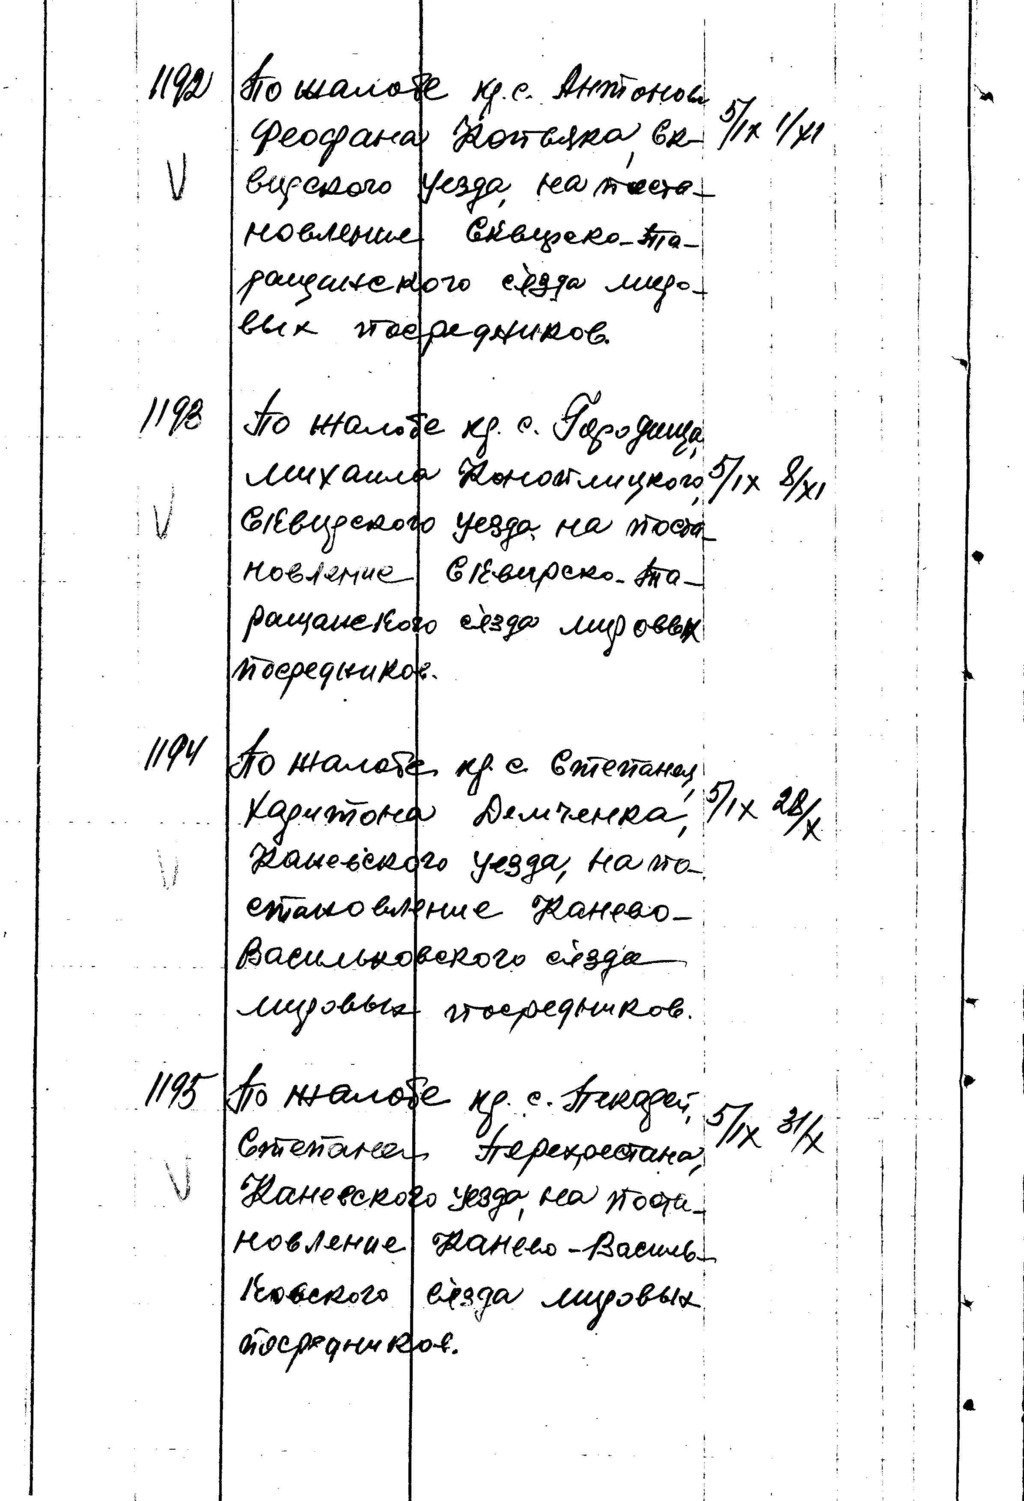 1192 По жалобе кр. с. Антонов
Феофана Копвяка, Ск- 5/IX 1/XI
V вирского уезда, на поста-
новление Сквирско-Та-
ращанского съезда миро-
вых посредников.
1193 По жалобе кр. с. Городища,
Михаила Конотлицкого, 5/IX 8/XI
V Сквирского уезда, на поста-
новление Сквирско-Та-
ращанского съезда мировых
посредников.
1194 По жалобе кр. с. Степанец,
Харитона Демченка, 5/IX 28/X
V Каневского уезда, на по-
становление Канево-
Васильковского съезда
мировых посредников.
1195 По жалобе кр. с. Пекарей,
Степана Перехрестана, 5/IX 31/X
V Каневского уезда, на поста-
новление Канево-Василь-
ковского съезда мировых
посредников.